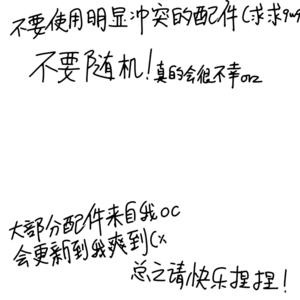 不要使用明显冲突的配件(求求qwq
不要随机！真的会很不幸orz
大部分配件来自我oc
会更新到我爽到(x
总之请快乐捏捏！